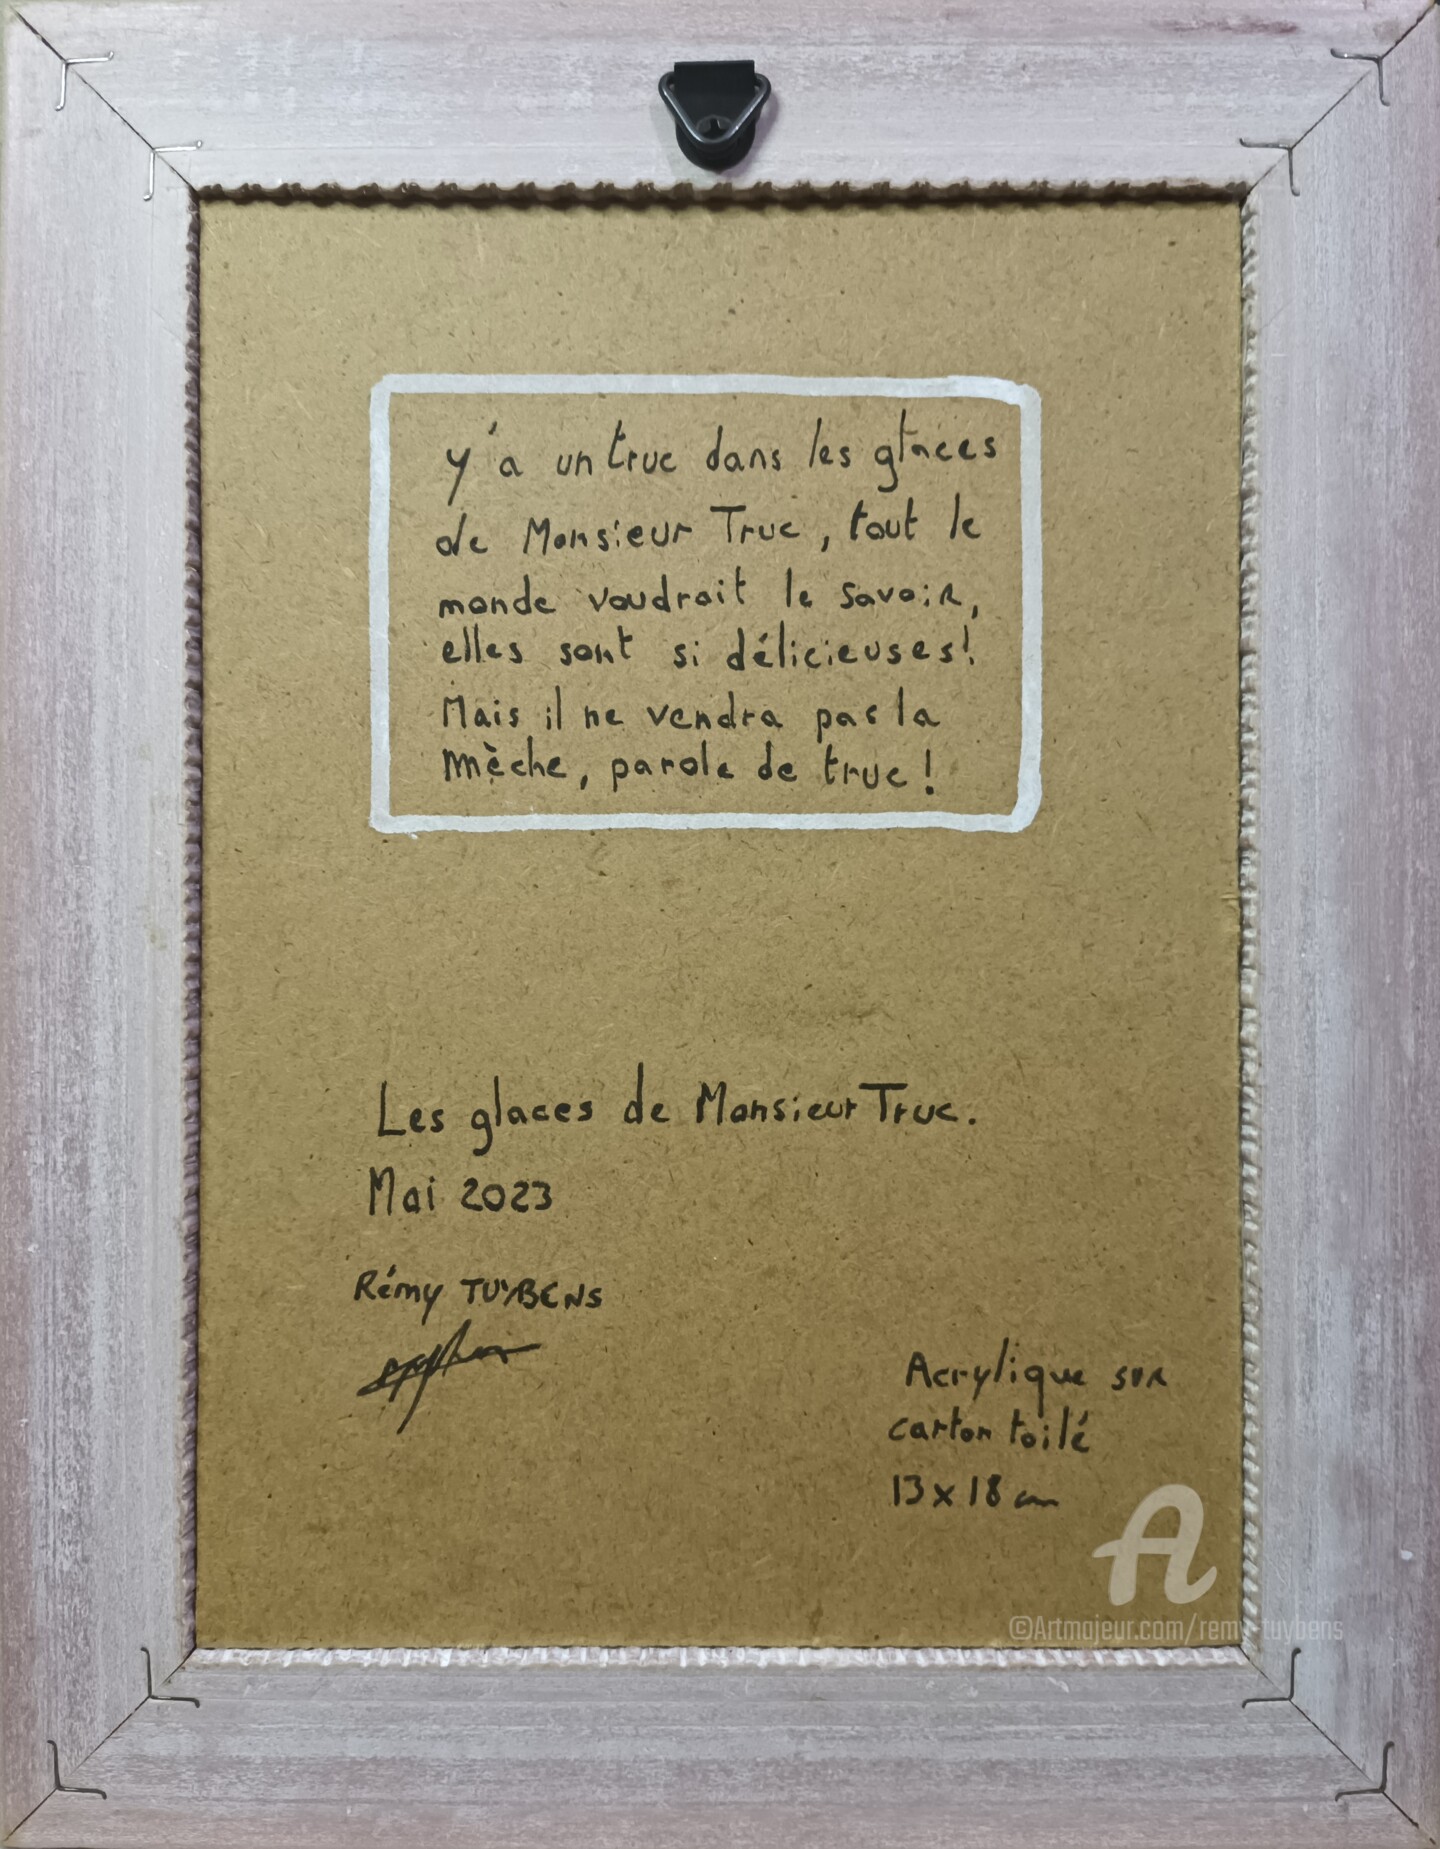 y'a un truc dans les glaces
de Monsieur Truc, tout le
monde voudrait le savoir,
elles sont si délicieuses!
Mais il ne vendra pas la
mèche, parole de truc!
Les glaces de Monsieur Truc.
Mai 2023
Rémy TUYBENS
Acrylique sur
carton toilé
13 x 18 cm
A
©Artmajeur.com/remy-tuybens